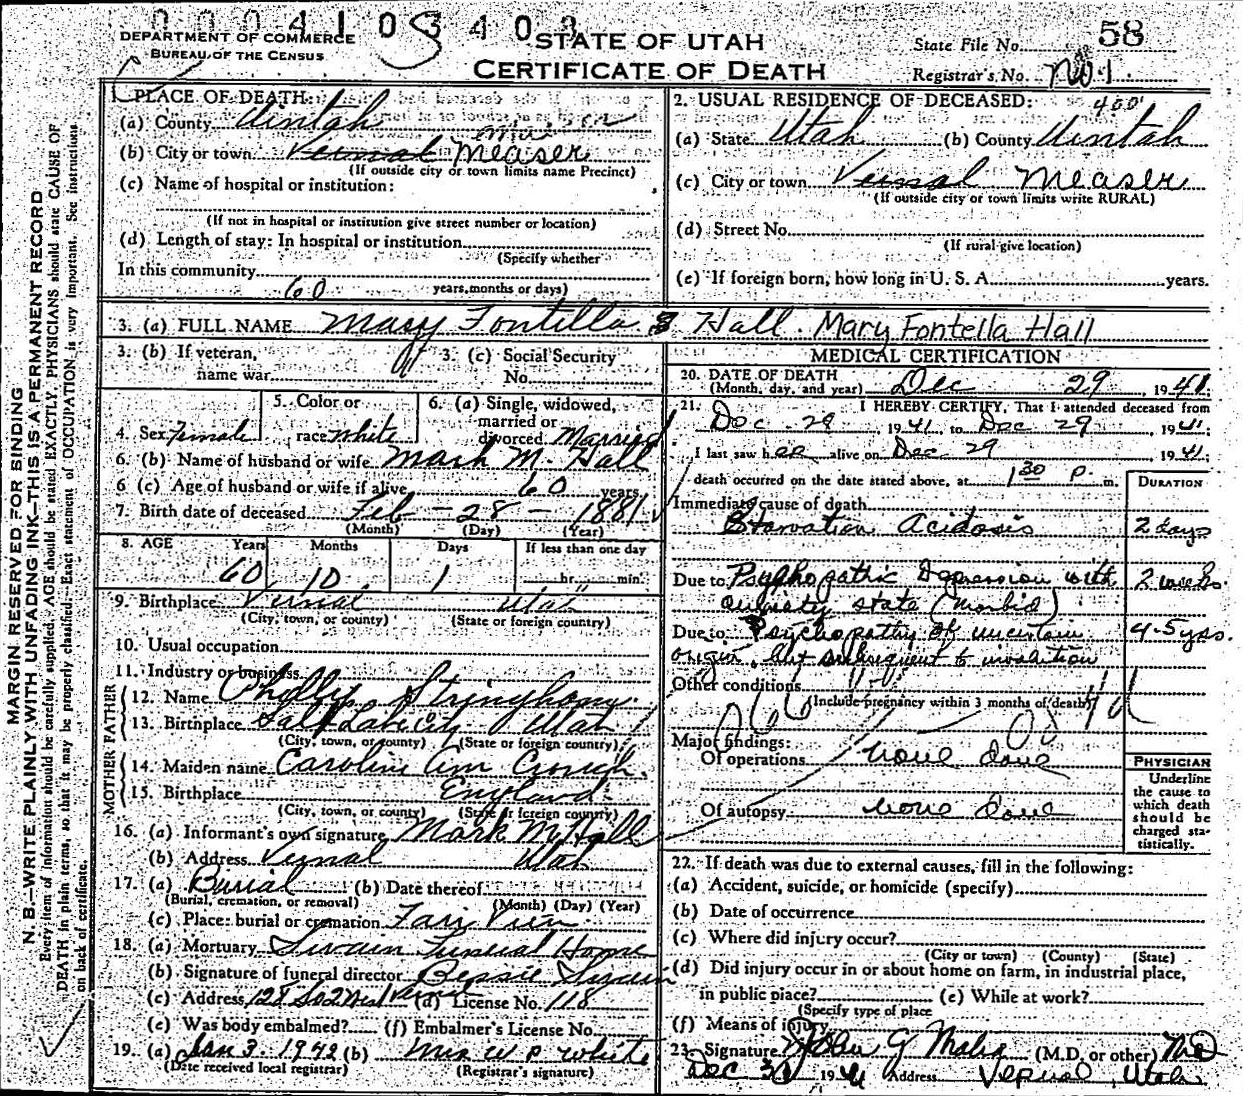 0 0 0 4 1 0 3 4 0 3
DEPARTMENT OF COMMERCE
BUREAU OF THE CENSUS
STATE OF UTAH
CERTIFICATE OF DEATH
State File No. 58
Registrar's No.
MARGIN RESERVED FOR BINDING
N. B.—WRITE PLAINLY WITH UNFADING INK—THIS IS A PERMANENT RECORD
Every item of information should be carefully supplied. AGE should be stated EXACTLY. PHYSICIANS should state CAUSE OF
DEATH in plain terms, so that it may be properly classified. Exact statement of OCCUPATION is very important. See instructions
on back of certificate.
1. PLACE OF DEATH:
(a) County Uintah
(b) City or town Vernal Measer
(If outside city or town limits name Precinct)
(c) Name of hospital or institution:
(If not in hospital or institution give street number or location)
(d) Length of stay: In hospital or institution
(Specify whether
In this community 60
years, months or days)
2. USUAL RESIDENCE OF DECEASED:
(a) State Utah (b) County Uintah
(c) City or town Vernal Measer
(If outside city or town limits write RURAL)
(d) Street No.
(If rural give location)
(e) If foreign born, how long in U. S. A. years.
3. (a) FULL NAME Mary Fontella S Hall. Mary Fontella Hall
3. (b) If veteran,
name war
3. (c) Social Security
No.
4. Sex Female
5. Color or
race White
6. (a) Single, widowed,
married or
divorced Married
6. (b) Name of husband or wife Mark M. Hall
6 (c) Age of husband or wife if alive 60 years
7. Birth date of deceased Feb - 28 - 1881
(Month) (Day) (Year)
8. AGE Years Months Days If less than one day
60 10 1 hr. min.
9. Birthplace Vernal Utah
(City, town, or county) (State or foreign country)
10. Usual occupation
11. Industry or business
FATHER
12. Name Philip Stringham
13. Birthplace Salt Lake City Utah
(City, town, or county) (State or foreign country)
MOTHER
14. Maiden name Caroline Ann Crouch
15. Birthplace England
(City, town, or county) (State or foreign country)
16. (a) Informant's own signature Mark M Hall
(b) Address Vernal Utah
17. (a) Burial (b) Date thereof
(Burial, cremation, or removal) (Month) (Day) (Year)
(c) Place: burial or cremation Fair View
18. (a) Mortuary Swain Funeral Home
(b) Signature of funeral director Bessie Swain
(c) Address 128 So 2 West Vernal (d) License No. 118
(e) Was body embalmed? (f) Embalmer's License No.
19. (a) Jan 3. 1942 (b) Mrs W P White
(Date received local registrar) (Registrar's signature)
MEDICAL CERTIFICATION
20. DATE OF DEATH
(Month, day, and year) Dec 29 1941
21. I HEREBY CERTIFY, That I attended deceased from
Dec. 28 1941 to Dec 29 1941;
I last saw her alive on Dec 29 1941;
death occurred on the date stated above, at 1 30 P. m.
DURATION
Immediate cause of death
Starvation Acidosis 2 days
Due to Psychopathic Depression with 2 weeks
anxiety state (morbid)
Due to Psychopathy of uncertain 4-5 yrs.
origin, but subsequent to involution
Other conditions
(Include pregnancy within 3 months of death)
Major findings:
Of operations none done
Of autopsy none done
PHYSICIAN
Underline
the cause to
which death
should be
charged sta-
tistically.
22. If death was due to external causes, fill in the following:
(a) Accident, suicide, or homicide (specify)
(b) Date of occurrence
(c) Where did injury occur?
(City or town) (County) (State)
(d) Did injury occur in or about home on farm, in industrial place,
in public place? (e) While at work?
(Specify type of place
(f) Means of injury
23. Signature John G Malia (M.D. or other) MD
Dec 30 1941 Address Vernal, Utah